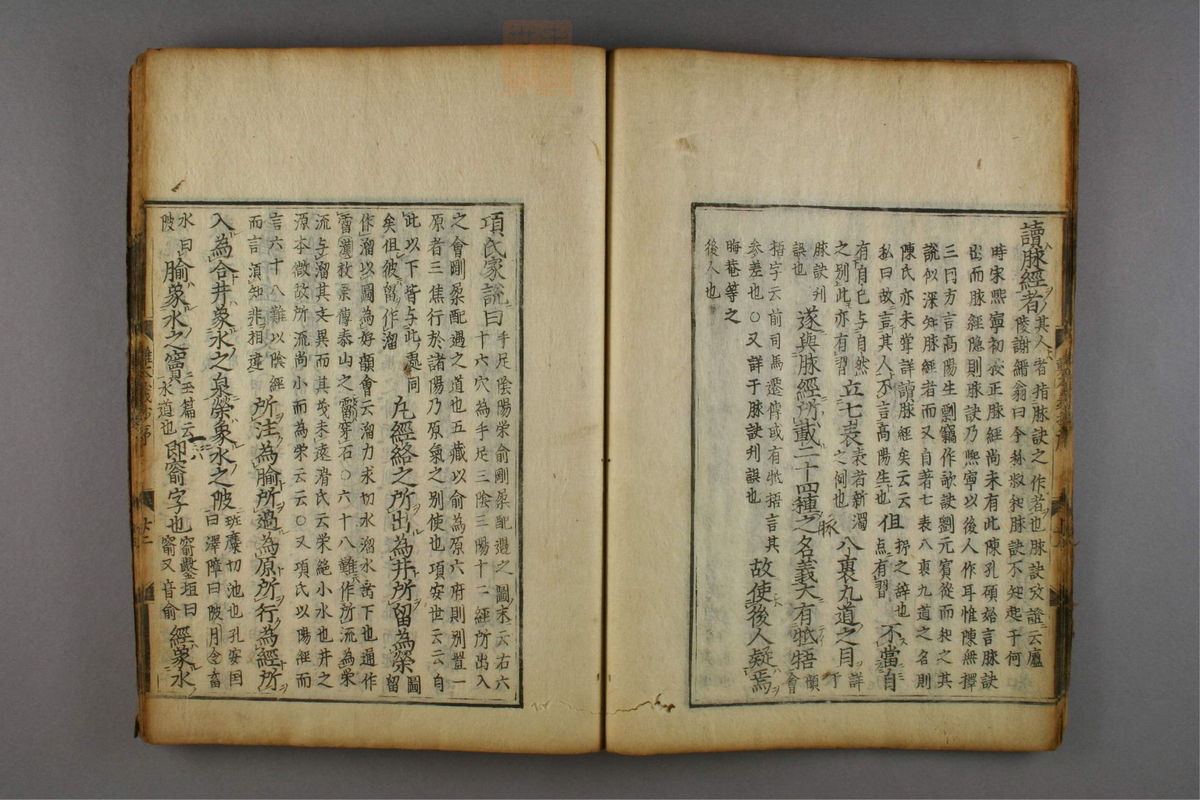 讀脉經者其人者指脉訣之作者也脉訣攷證云廬
陵謝縉翁曰今称叔和脉訣不知起于何
時宋熙寧初校正脉經尚未有此陳孔碩始言脉訣
出而脉經隐則脉訣乃熙寧以後人作耳惟陳無擇
三因方言高陽生剽竊作歌訣劉元賓從而和之其
說似深知脉經者而又自著七表八裏九道之名則
陳氏亦未甞詳讀脉經矣云云但抑之辞也
私曰故言其人不言高陽生也点有習不當自
有自己与自然
之别此亦有習立七表表者新濁之詞也脉八裏九道之目詳于
脉訣刋
誤也遂與脉經所載二十四種之名義大有牴牾韻會
牾字云前司馬遷傳或有牴牾言其
参差也○又詳于脉訣刋誤也故使後人疑焉
晦菴等之
後人也
項氏家說曰手足陰陽榮俞剛柔配遇之圖末云右六
十六穴為手足三陰三陽十二經所出入
之會剛柔配遇之道也五藏以俞為原六府則别置一
原者三焦行於諸陽乃原氣之别使也項安世云云自
此以下皆与此處同凡經絡之所出為井所留為榮圖
矣但彼留作溜留
作溜以圖為好韻會云溜力求切水溜水垂下也通作
霤漢枚乘傳泰山之霤穿石○六十八難作所流為榮
流与溜其文異而其義未遠滑氏云榮絶小水也井之
源本微故所流尚小而為荣云云○又項氏以陽經而
言六十八難以陰經
而言須知非相違所注為腧所過為原所行為經所
入為合井象水之泉榮象水之陂班麋切池也孔安囯
曰澤障曰陂月令畜
水曰陂腧象水之竇玉篇云水道也即窬字也窬鑿垣曰窬又音俞經象水